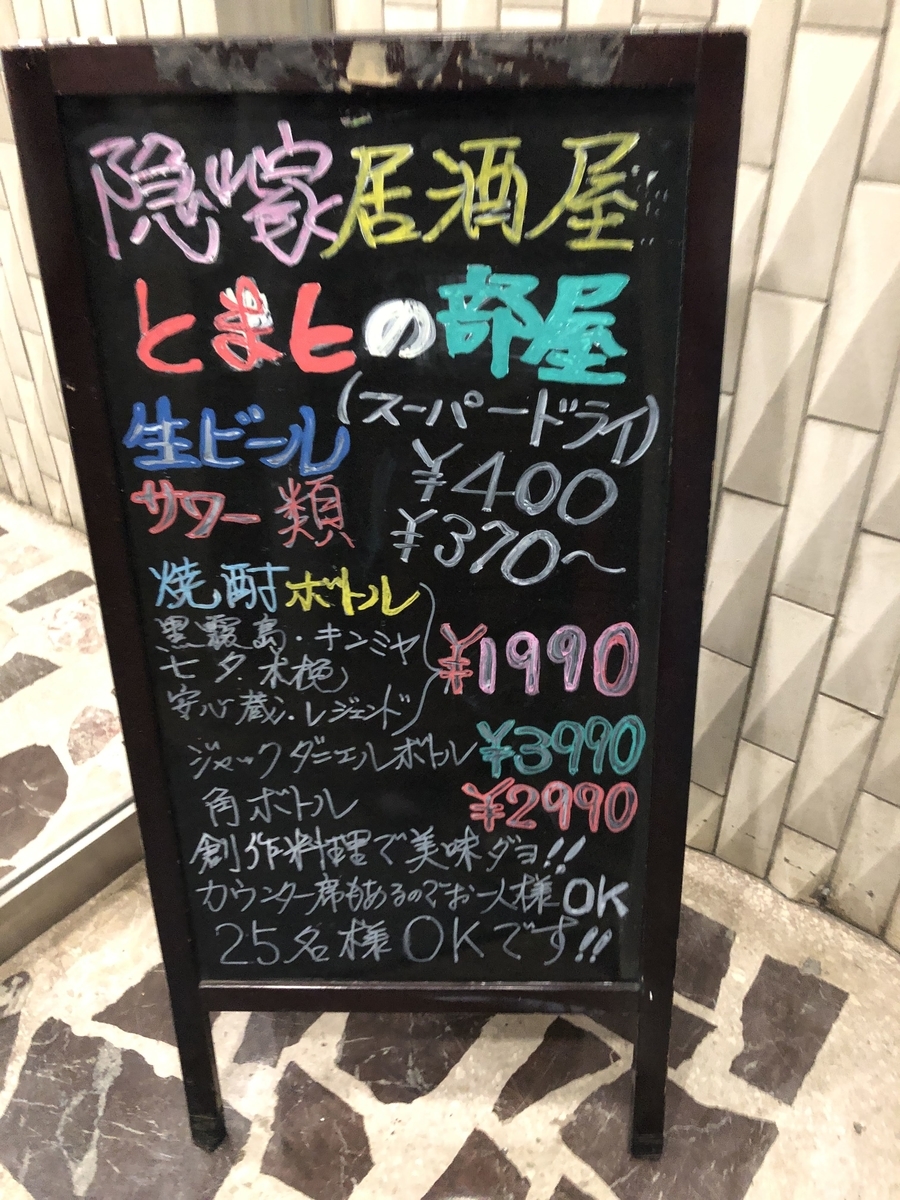 隠れ家居酒屋
とまとの部屋
生ビール(スーパードライ)
¥400
サワー類 ¥370〜
焼酎ボトル
黒霧島・キンミヤ
七夕・木挽
安心蔵・レジェンド
¥1990
ジャックダニエルボトル ¥3990
角ボトル ¥2990
創作料理で美味ダョ!!
カウンター席もあるのでお一人様OK
25名様OKです!!